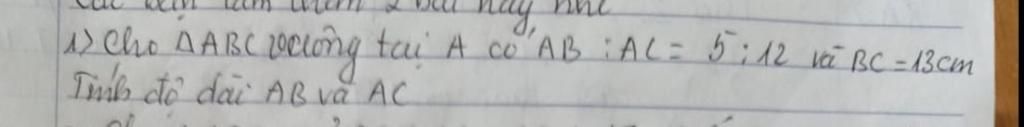 các bạn làm thêm 2 bài này nhé
1) Cho ΔABC vuông tại A có AB : AC = 5 : 12 và BC = 13cm
Tính độ dài AB và AC